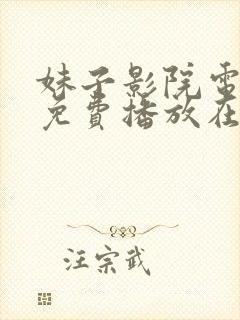 妹子影院电
免费播放在
汪宗武